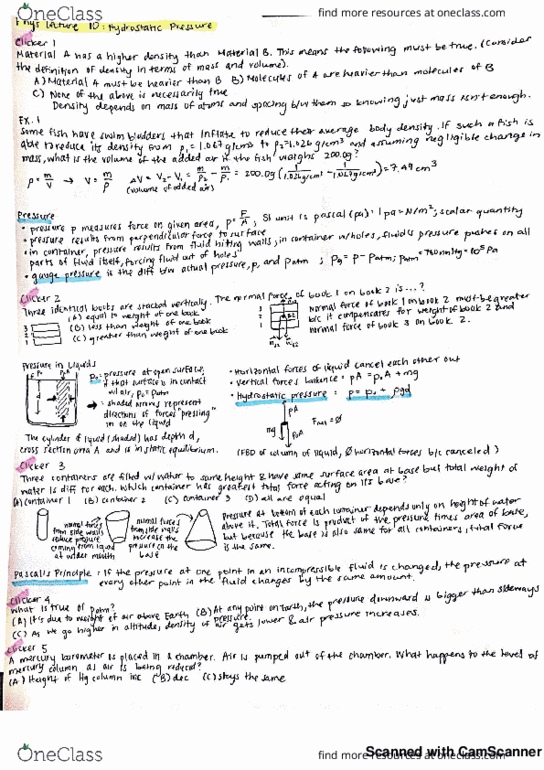 OneClass
find more resources at oneclass.com
Phys Lecture 10: Hydrostatic Pressure
Clicker 1
Material A has a higher density than Material B. This means the following must be true. (Consider
the definition of density in terms of mass and volume).
A) Material A must be heavier than B B) Molecules of A are heavier than molecules of B
C) None of the above is necessarily true
Density depends on mass of atoms and spacing b/w them so knowing just mass isn't enough.
Ex. 1
Some fish have swim bladders that inflate to reduce their average body density. If such a fish is
able to reduce its density from ρ₁ = 1.067 g/cm³ to ρ₂ = 1.026 g/cm³ and assuming negligible change in
mass, what is the volume of the added air if the fish weighs 200.0g?
ρ = m/V → V = m/ρ ΔV = V₂ - V₁ = m/ρ₂ - m/ρ₁ = 200.0g (1/1.026g/cm³ - 1/1.067g/cm³) = 7.49 cm³
(volume of added air)
Pressure
• pressure p measures force on given area, p = F/A; SI unit is pascal (Pa): 1 Pa = N/m²; scalar quantity
• pressure results from perpendicular force to surface
• in container, pressure results from fluid hitting walls; in container w/holes, fluid's pressure pushes on all
parts of fluid itself, forcing fluid out of holes
• gauge pressure is the diff b/w actual pressure, p, and patm ; pg = p - patm; patm = 760mmHg = 10⁵ Pa
Clicker 2
Three identical books are stacked vertically. The normal force of book 1 on book 2 is...?
(A) equal to weight of one book
(B) less than weight of one book
(C) greater than weight of one book
1
2
3
normal force of book 1 on book 2 must be greater
b/c it compensates for weight of book 2 and
normal force of book 3 on book 2.
Pressure in Liquids
p₀ = pressure at open surface;
if that surface is in contact
w/ air, p₀ = patm
→ shaded arrows represent
directions of forces "pressing"
in on the liquid
d
• Horizontal forces of liquid cancel each other out
• Vertical forces balance: pA = p₀A + mg
• Hydrostatic pressure: p = p₀ + ρgd
pA
mg
p₀A
The cylinder of liquid (shaded) has depth d,
cross section area A and is in static equilibrium.
(FBD of column of liquid, ∅ horizontal forces b/c canceled)
Clicker 3
Three containers are filled w/ water to same height & have same surface area at base but total weight of
water is diff for each. Which container has greatest total force acting on its base?
(A) container 1 (B) container 2 (C) container 3 (D) all are equal
normal forces
from side walls
reduce pressure
coming from liquid
at wider mouth
normal forces
from side walls
increase the
pressure on the
base
Pressure at bottom of each container depends only on height of water
above it. Total force is product of the pressure times area of base,
but because the base is also same for all containers, total force
is the same.
Pascal's Principle: If the pressure at one point in an incompressible fluid is changed, the pressure at
every other point in the fluid changes by the same amount.
Clicker 4
What is true of patm?
(A) It's due to weight of air above Earth (B) At any point on Earth, the pressure downward is bigger than sideways
pressure.
(C) As we go higher in altitude, density of air gets lower & air pressure increases.
Clicker 5
A mercury barometer is placed in a chamber. Air is pumped out of the chamber. What happens to the level of
mercury column as air is being reduced?
(A) Height of Hg column inc (B) dec (C) stays the same
Scanned with CamScanner
OneClass
find more resources at oneclass.com